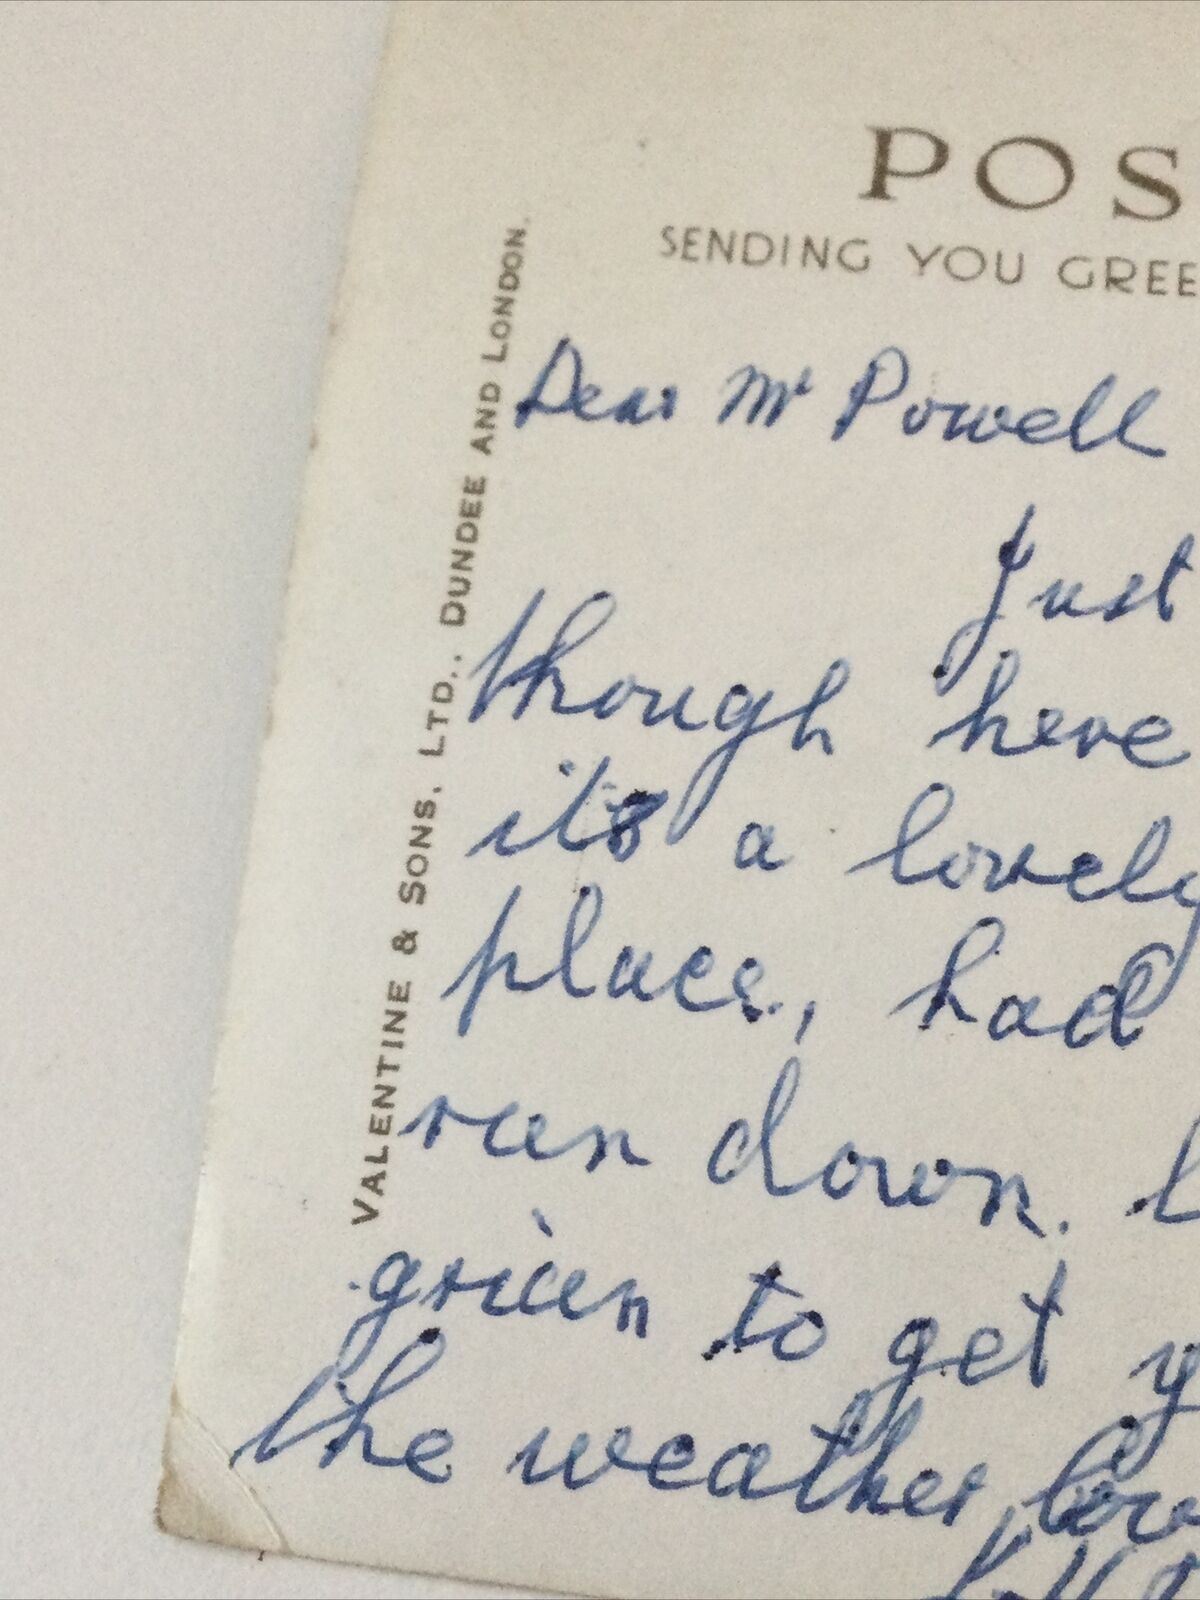 POS
SENDING YOU GREE
VALENTINE & SONS, LTD., DUNDEE AND LONDON.
Dear Mr Powell
Just
though here
its a lovely
place, had
run down.
to get y
the weather, lov